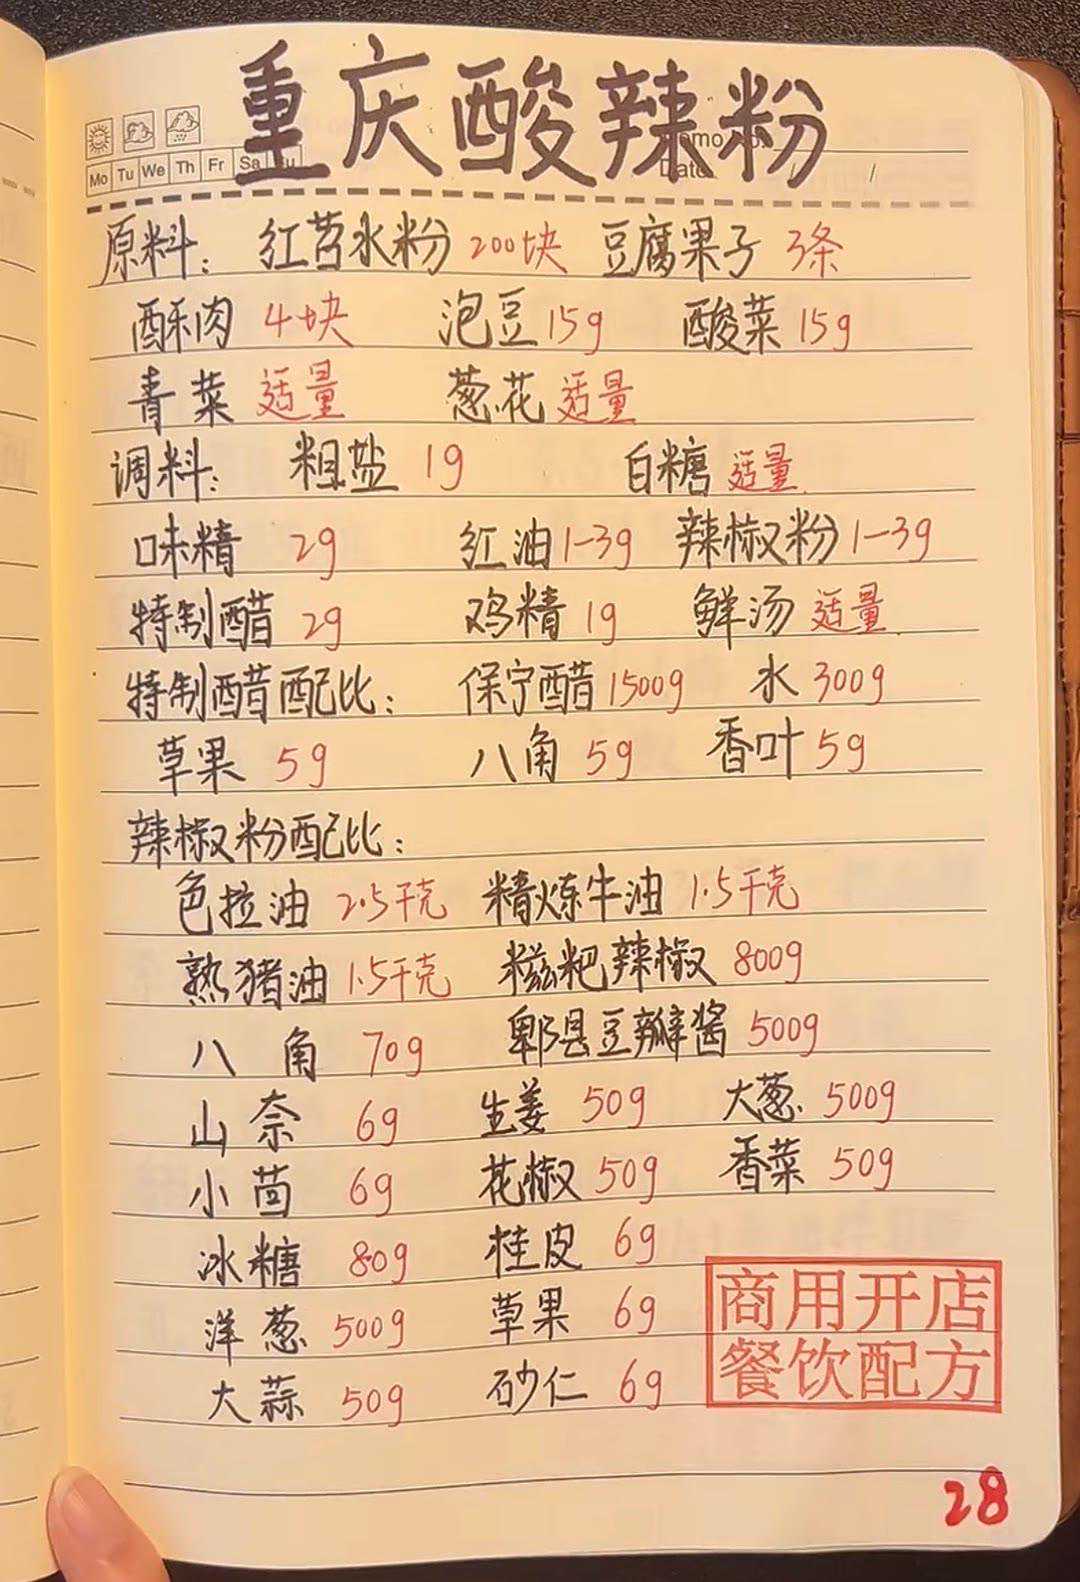 重庆酸辣粉
Mo Tu We Th Fr Sa Su
Date / /
原料： 红苕水粉 200块 豆腐果子 3条
酥肉 4块 泡豆 15g 酸菜 15g
青菜 适量 葱花 适量
调料： 粗盐 1g 白糖 适量
味精 2g 红油 1-3g 辣椒粉 1-3g
特制醋 2g 鸡精 1g 鲜汤 适量
特制醋配比： 保宁醋 1500g 水 300g
草果 5g 八角 5g 香叶 5g
辣椒粉配比：
色拉油 2.5千克 精炼牛油 1.5千克
熟猪油 1.5千克 糍粑辣椒 800g
八角 70g 郫县豆瓣酱 500g
山奈 6g 生姜 50g 大葱 500g
小茴 6g 花椒 50g 香菜 50g
冰糖 80g 桂皮 6g
洋葱 500g 草果 6g
大蒜 50g 砂仁 6g
商用开店
餐饮配方
28